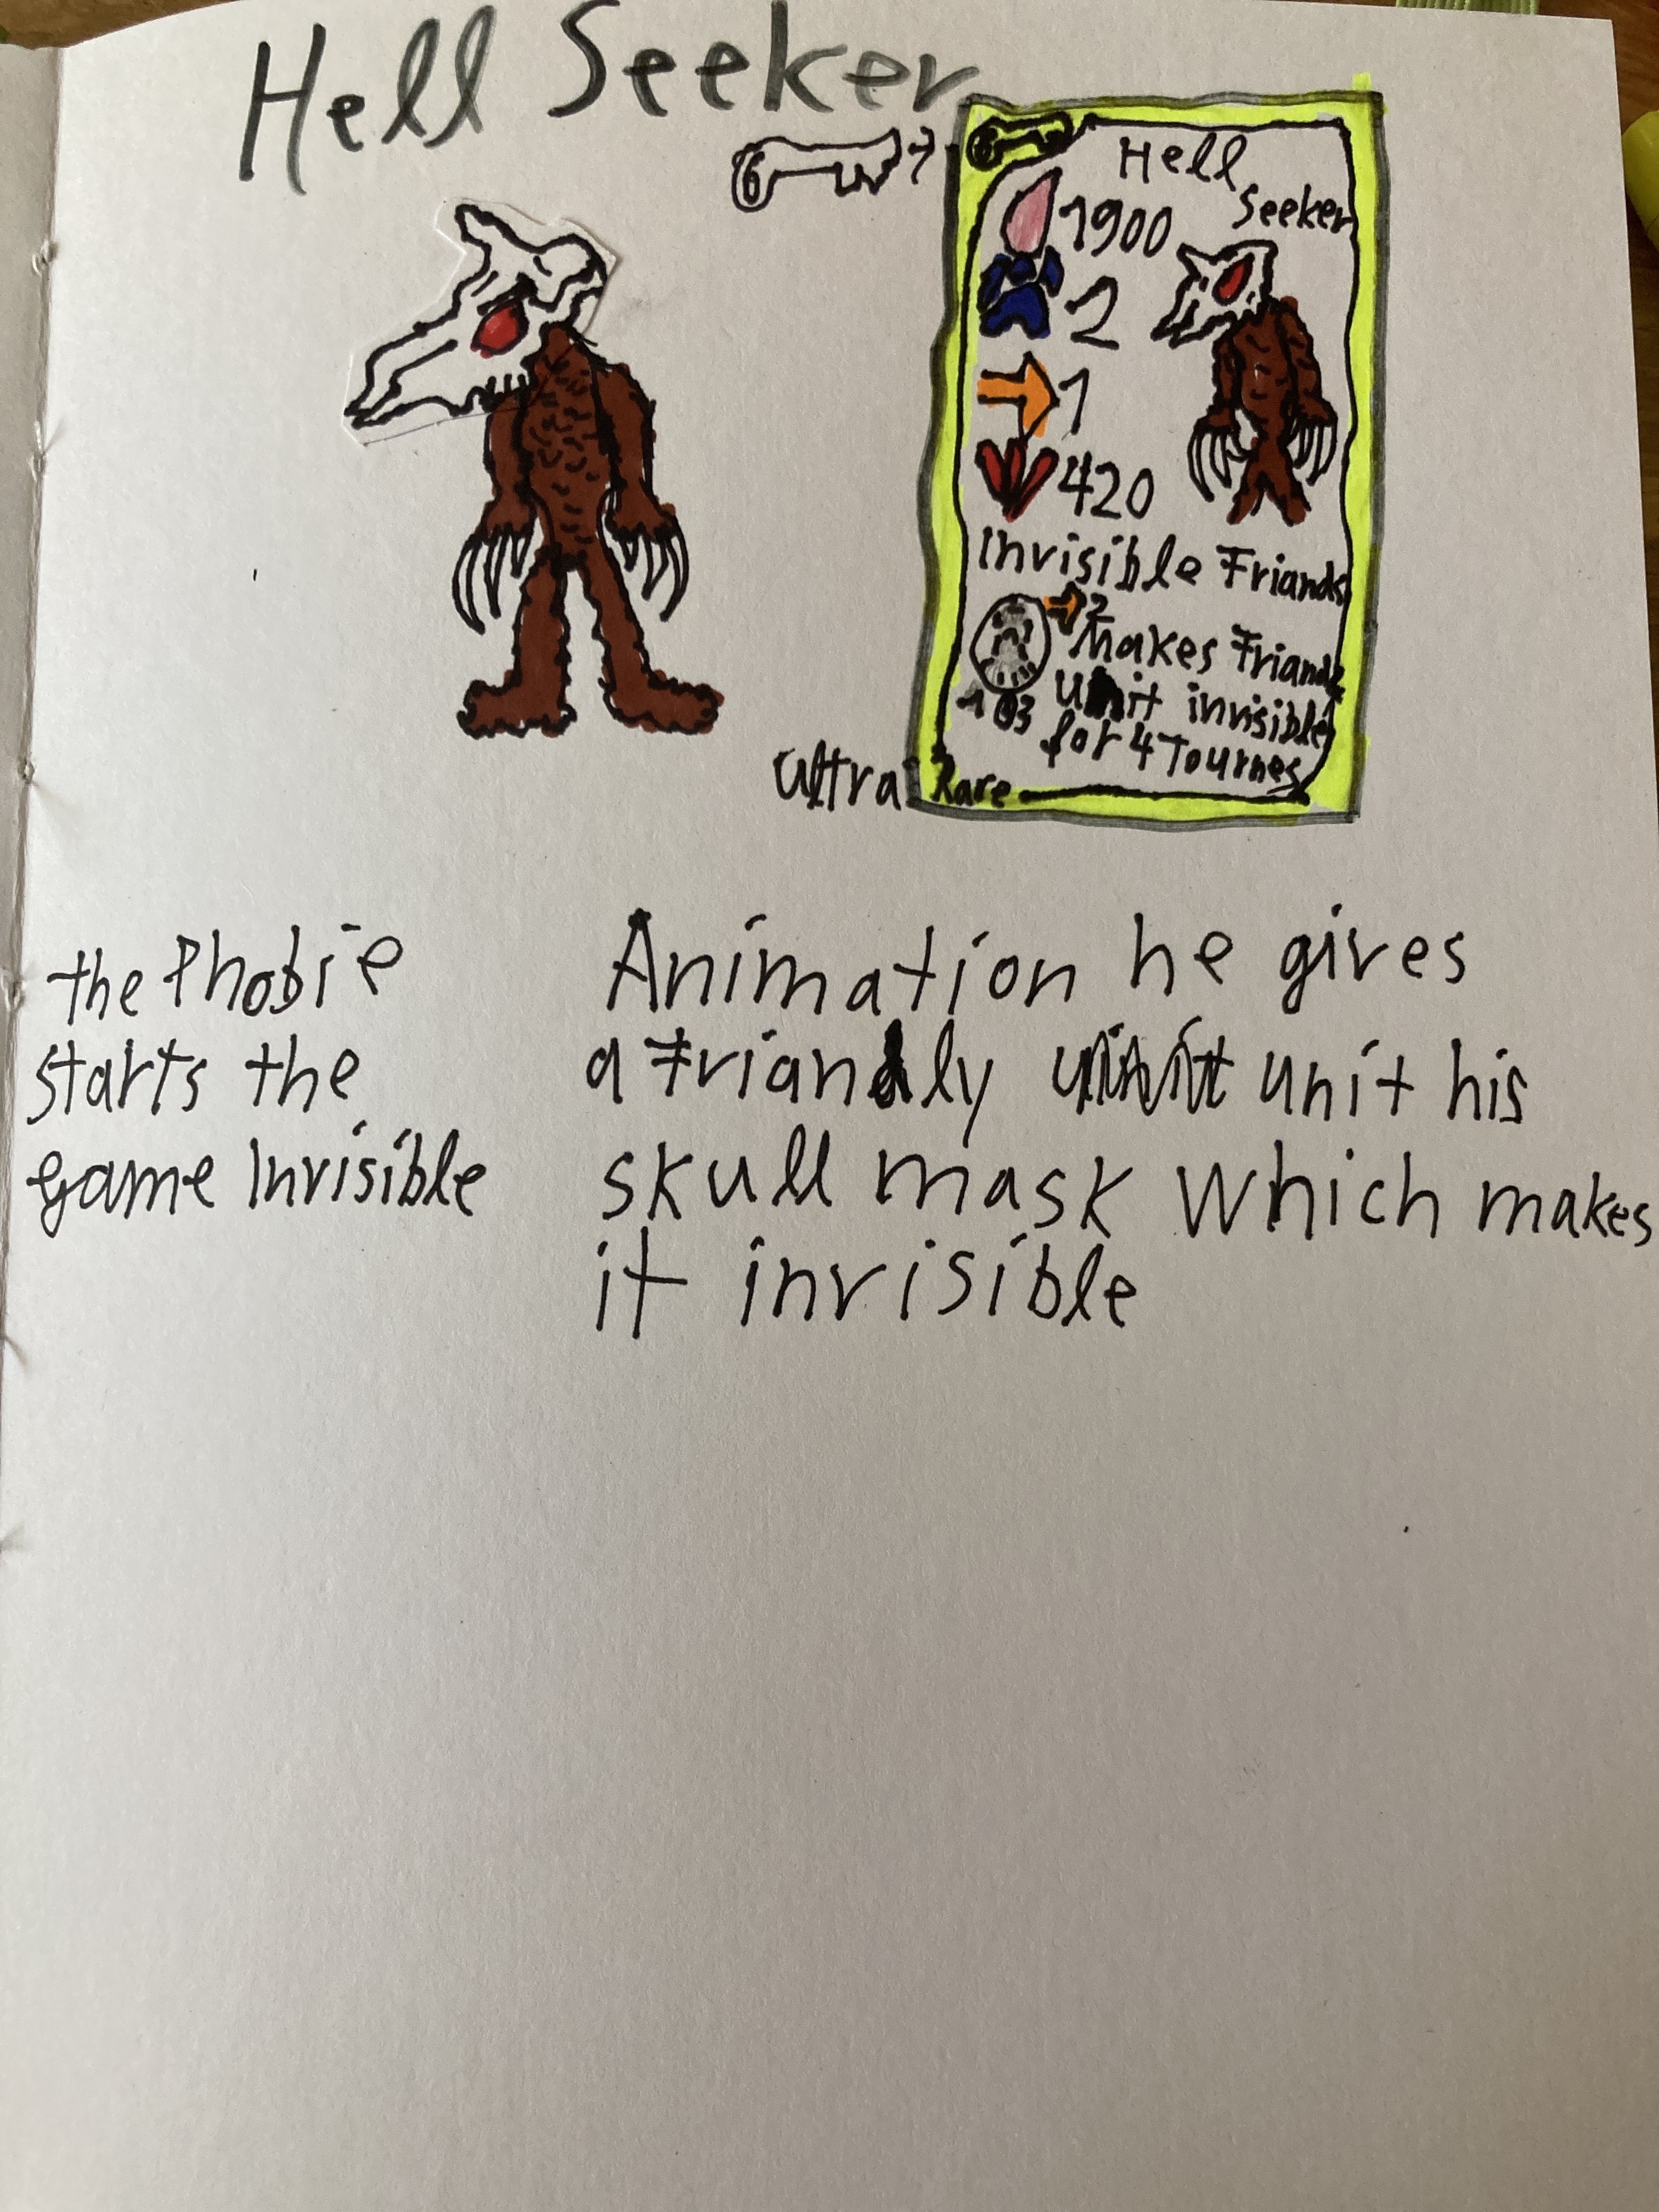 Hell Seeker
6
6
Hell
Seeker
1900
2
1
420
Invisible Friands
2
Makes Friandly
Unit invisible
for 4 Tournes
Ultra Rare
the Phobie
starts the
game Invisible
Animation he gives
a Friandly unit his
skull mask which makes
it invisible